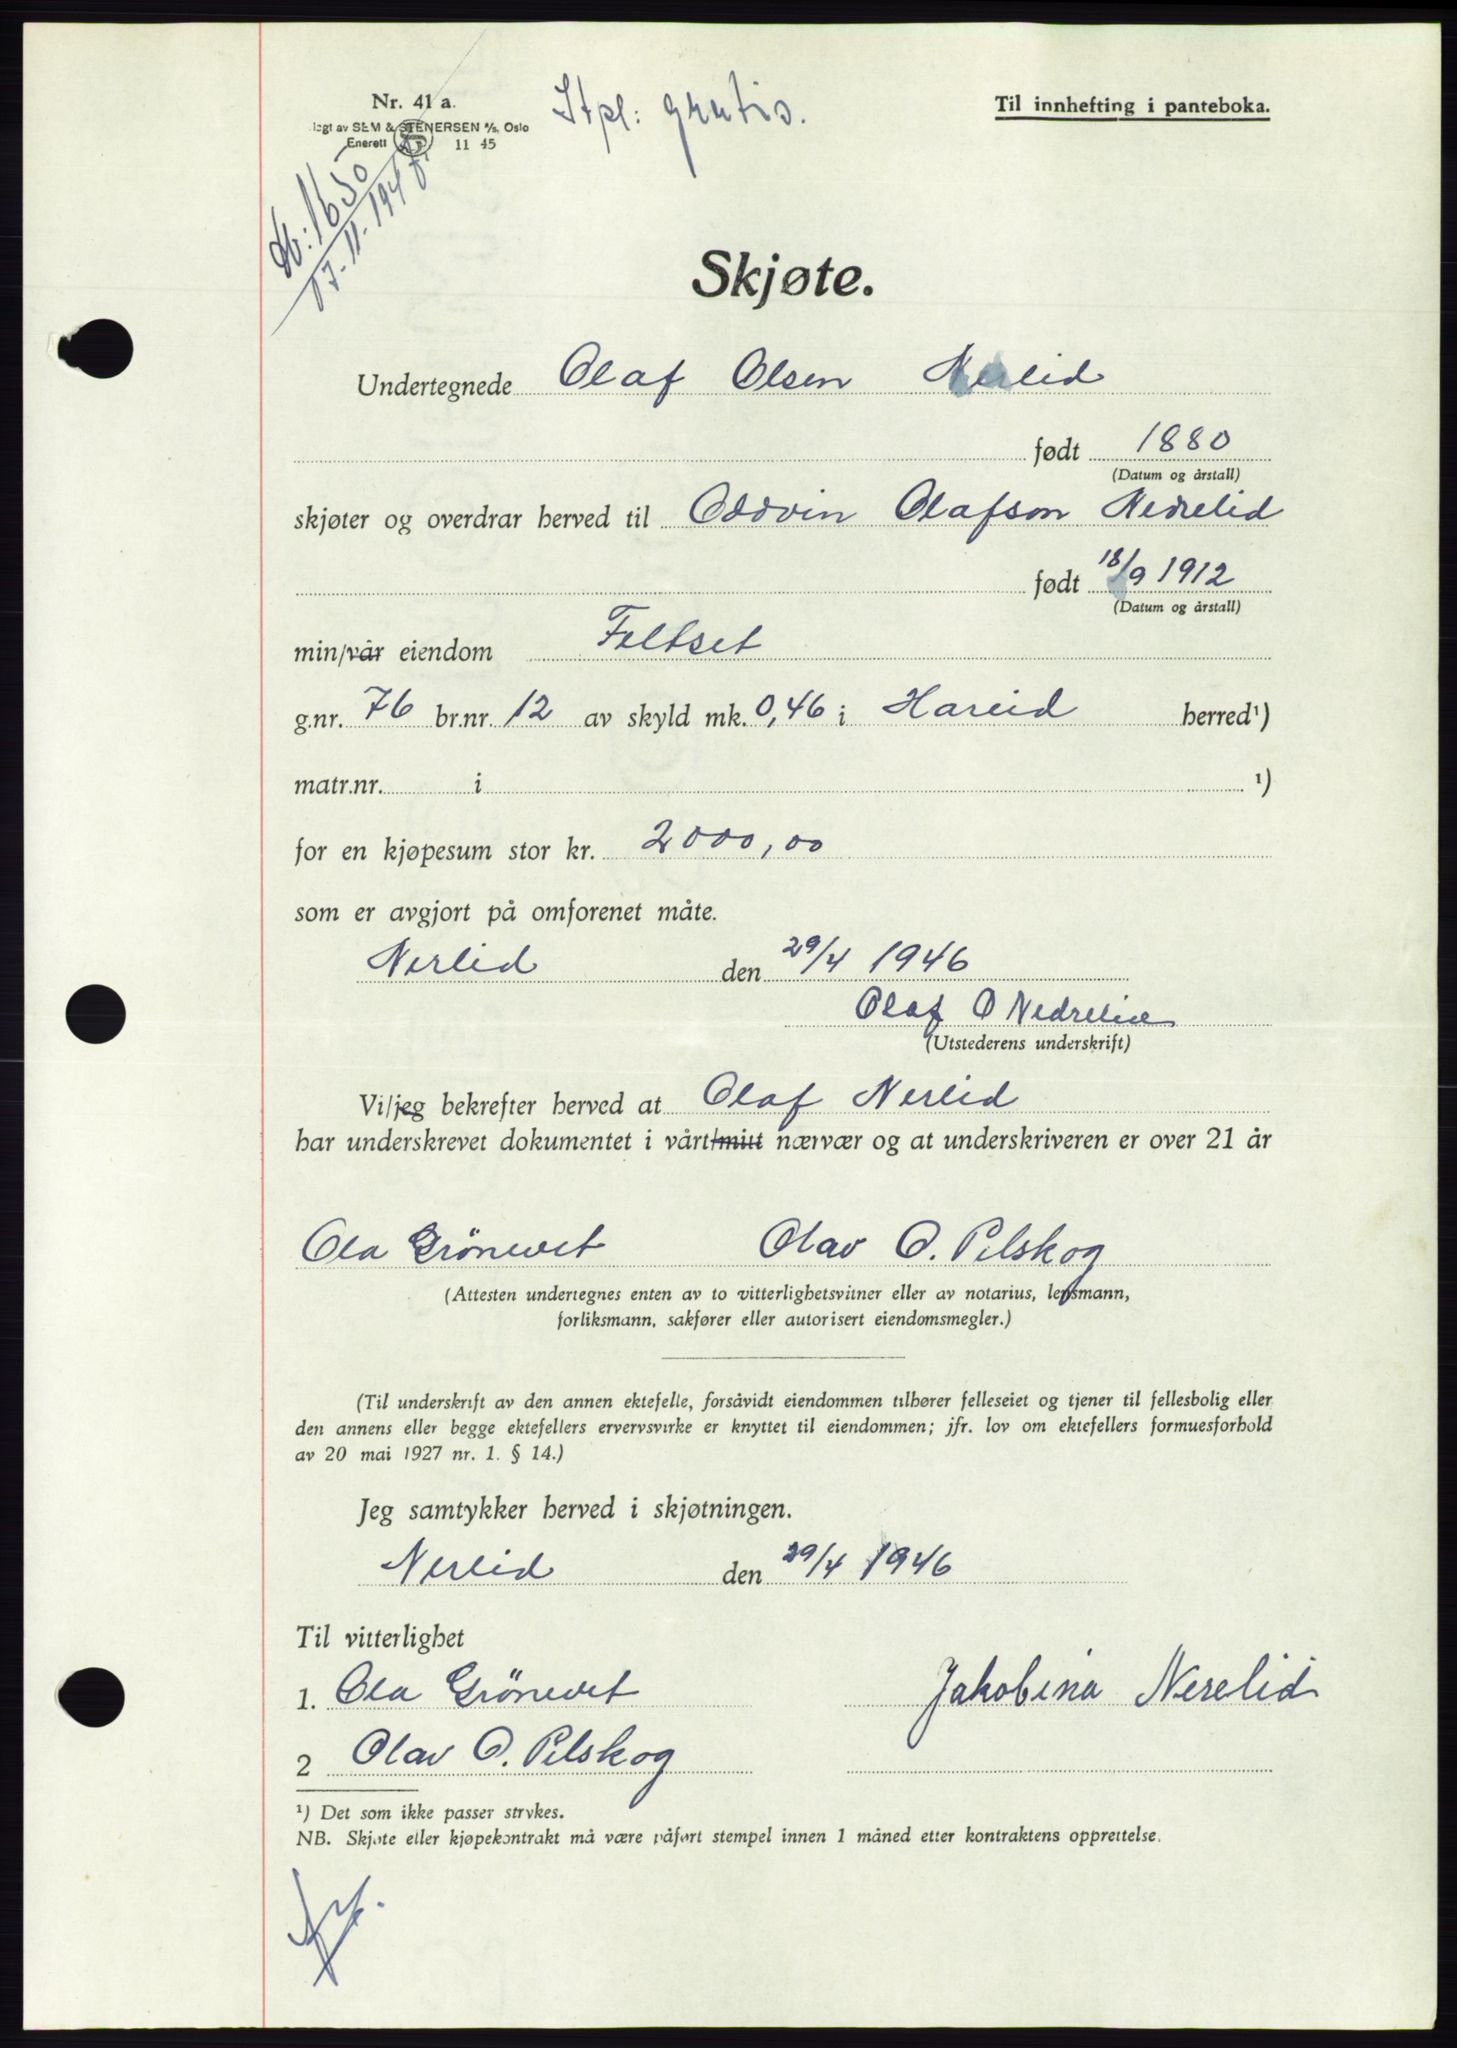 Nr. 41 a.
lagt av SEM & STENERSEN A/S, Oslo
Enerett 11 45
Stpl: gratis.
Til innhefting i panteboka.
Skjøte.
Undertegnede Olaf Olsen Nerlid
født 1880
(Datum og årstall)
skjøter og overdrar herved til Oddvin Olafson Nedrelid
født 18/9 1912
(Datum og årstall)
min/vår eiendom Feltset
g.nr. 76 br.nr. 12 av skyld mk. 0,46 i Hareid herred¹)
matr.nr. i ¹)
for en kjøpesum stor kr. 2000,00
som er avgjort på omforenet måte.
Nerlid den 29/4 1946
Olaf O Nedrelid
(Utstederens underskrift)
Vi/jeg bekrefter herved at Olaf Nerlid
har underskrevet dokumentet i vårt/mitt nærvær og at underskriveren er over 21 år
Ola Grönevet Olav O. Pilskog
(Attesten undertegnes enten av to vitterlighetsvitner eller av notarius, lensmann,
forliksmann, sakfører eller autorisert eiendomsmegler.)
(Til underskrift av den annen ektefelle, forsåvidt eiendommen tilhører felleseiet og tjener til fellesbolig eller
den annens eller begge ektefellers ervervsvirke er knyttet til eiendommen; jfr. lov om ektefellers formuesforhold
av 20 mai 1927 nr. 1. § 14.)
Jeg samtykker herved i skjøtningen.
Nerlid den 29/4 1946
Til vitterlighet
1. Ola Grönevet Jakobina Nerelid
2 Olav O. Pilskog
¹) Det som ikke passer strykes.
NB. Skjøte eller kjøpekontrakt må være påført stempel innen 1 måned etter kontraktens opprettelse.